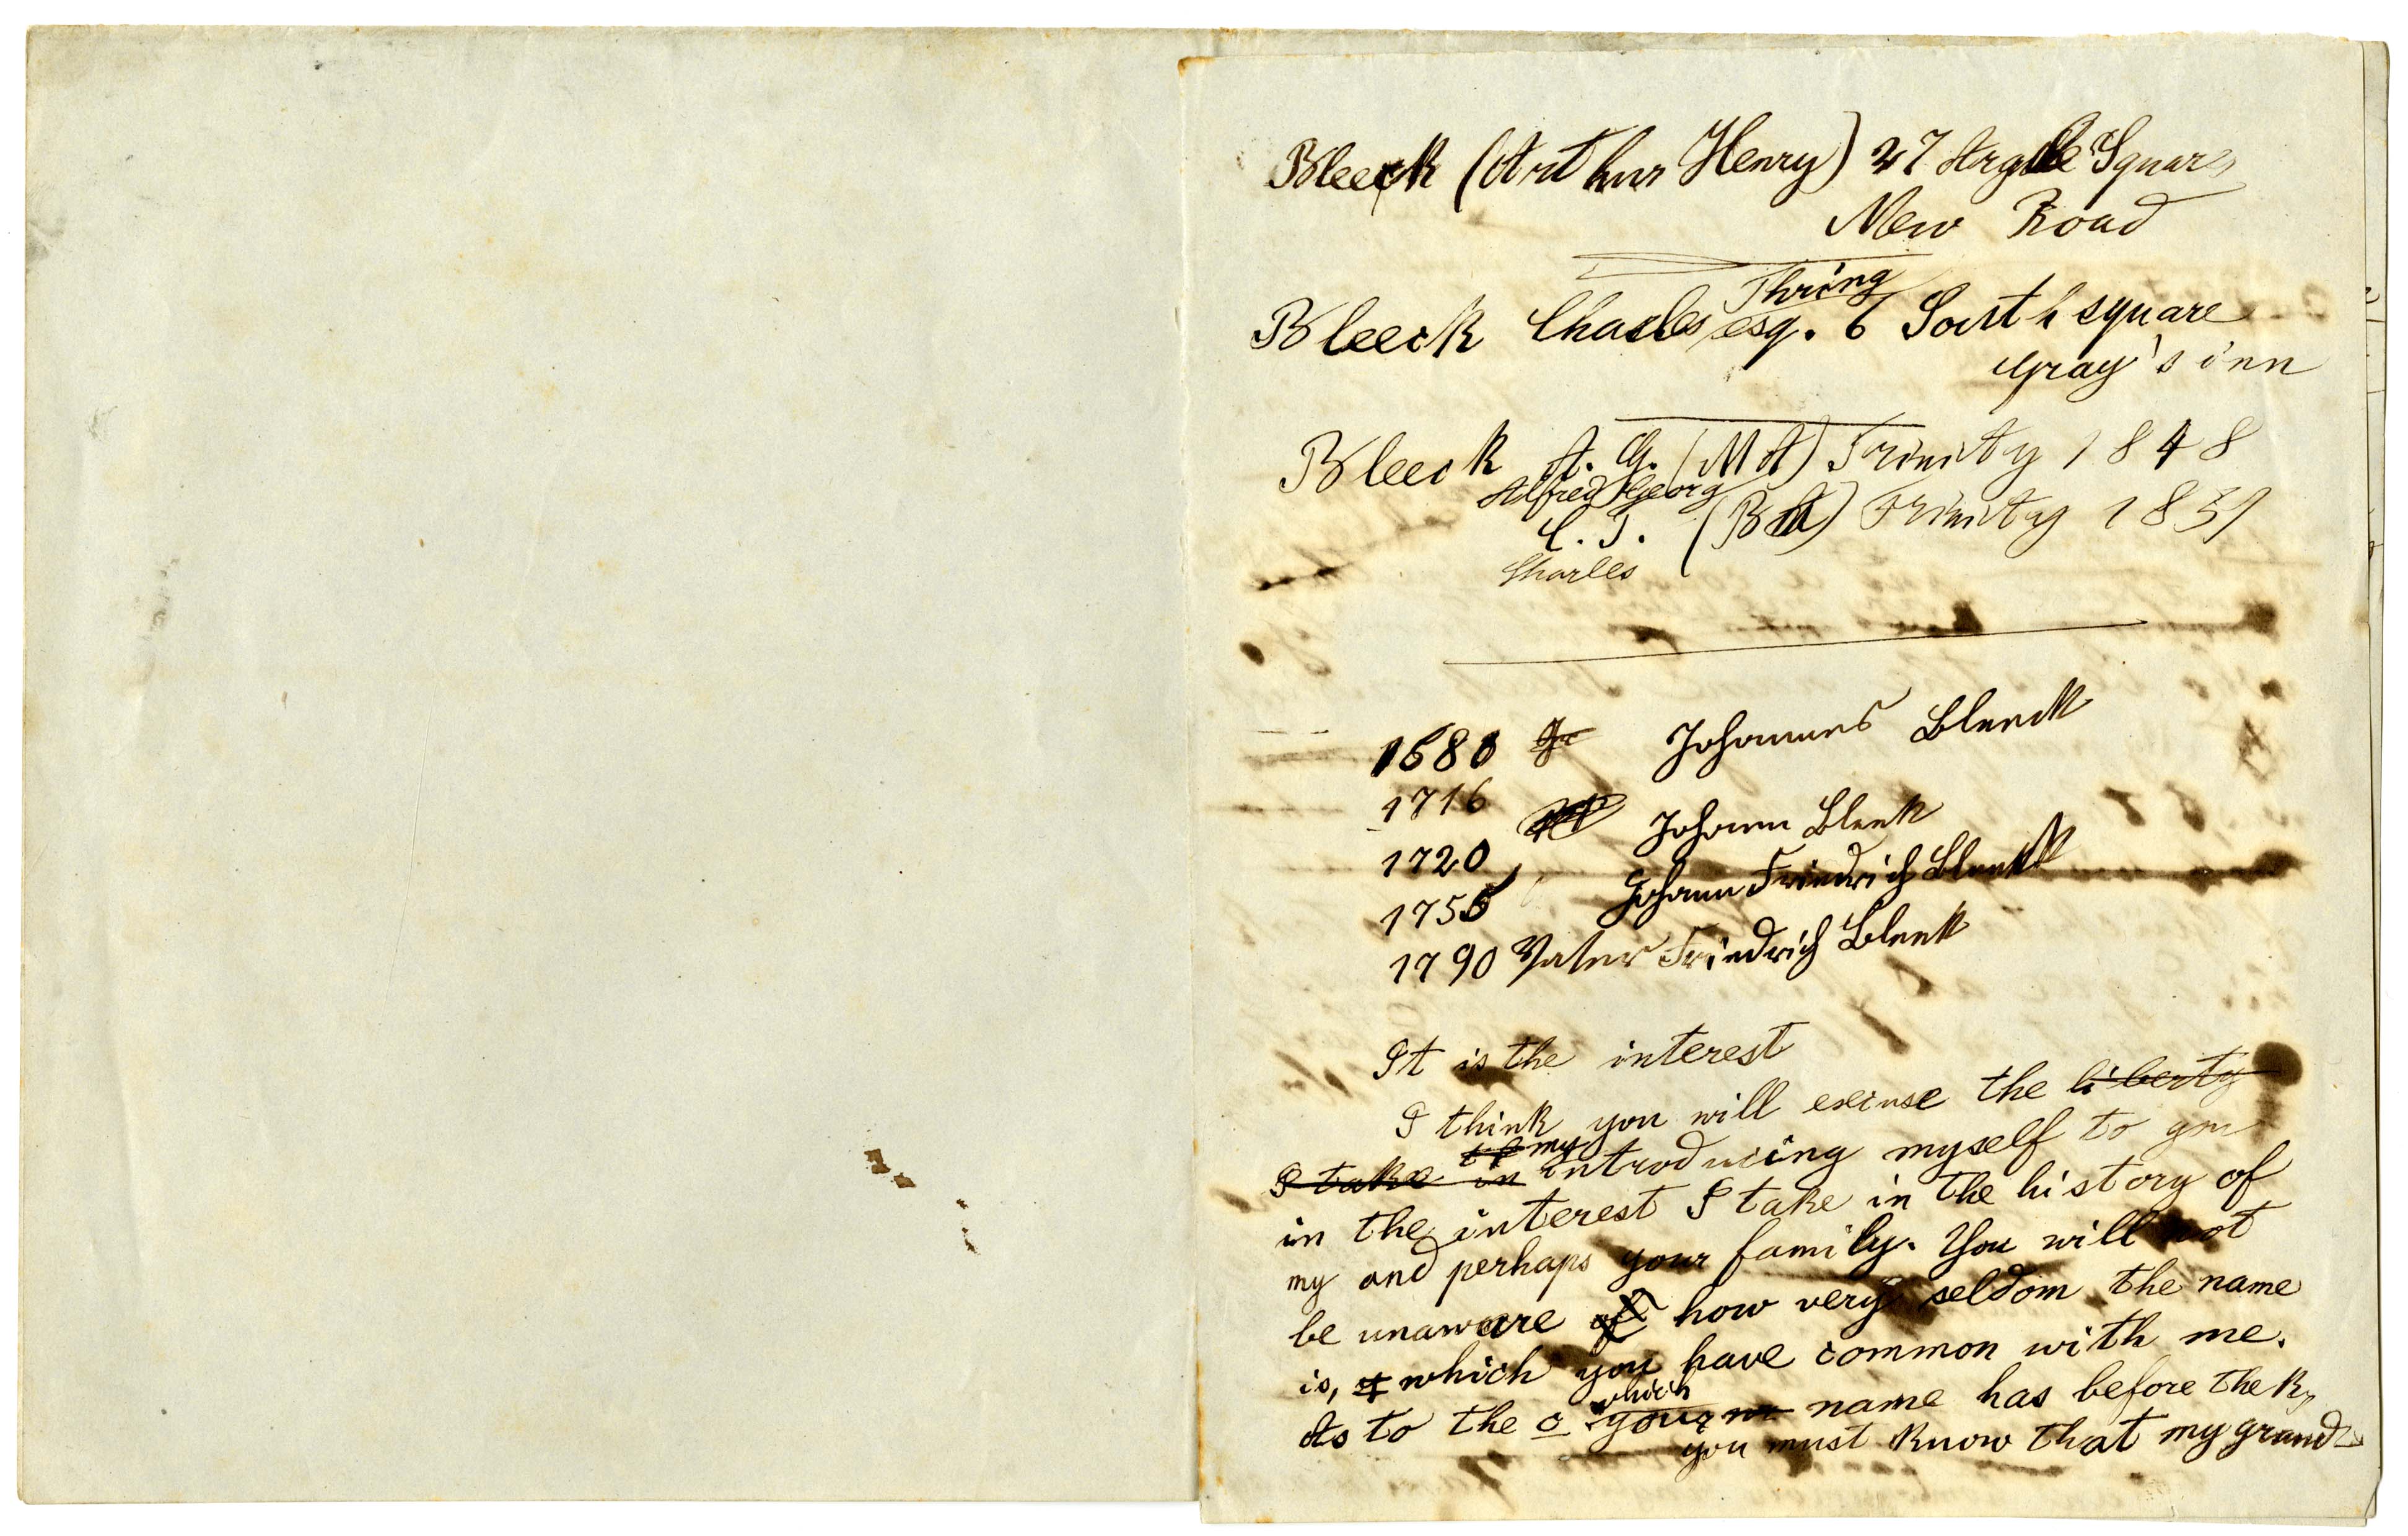 Bleeck (Arthur Henry) 27 Argyle Square
New Road
Thring
Bleeck Charles esq. 6 South square
Gray's inn
Bleeck A. G. (MA) Trinity 1848
Alfred Georg
C. T. (BA) Trinity 1839
Charles
1680 Johannes Bleeck
1716
Johann Bleek
1720
Johann Friedrich Bleek
1755
1790 Vater Friedrich Bleek
It is the interest
I think you will excuse the liberty
my
I take in introducing myself to you
in the interest I take in the history of
my and perhaps your family. You will not
be unaware of how very seldom the name
is, which you have common with me.
which
As to the c your name has before the k,
you must know that my grand